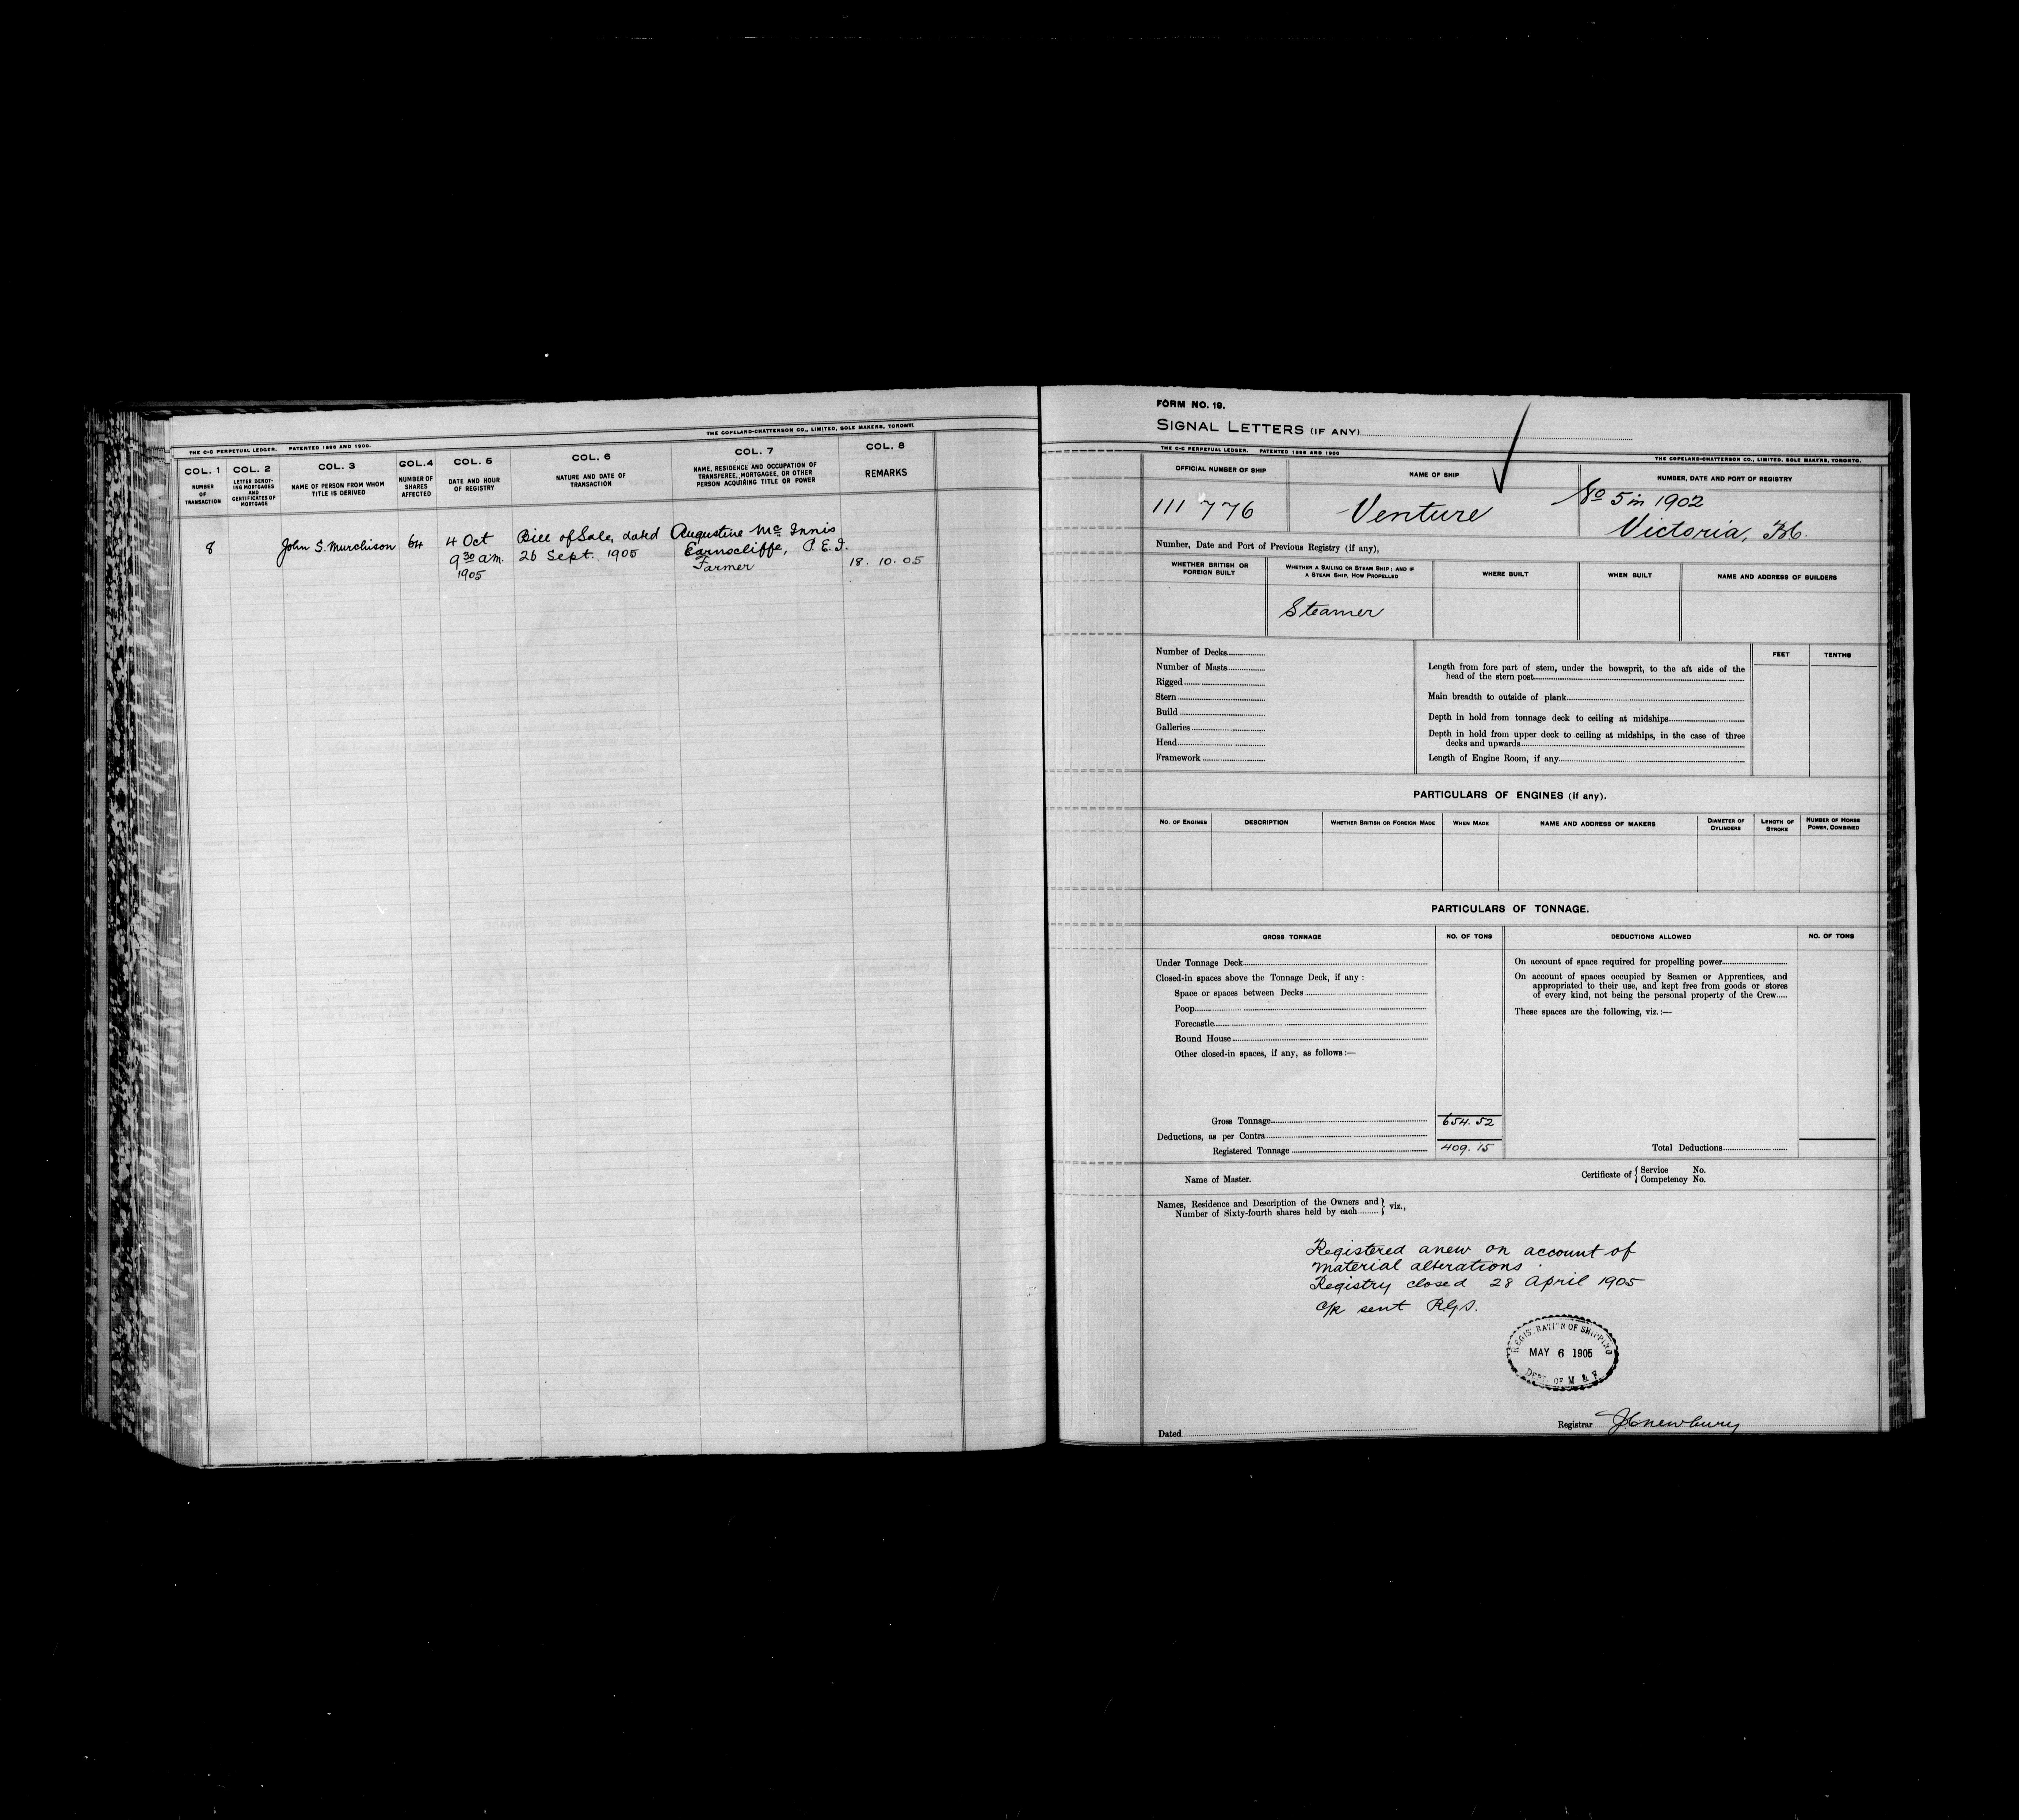 THE C-C PERPETUAL LEDGER. PATENTED 1896 AND 1900. THE COPELAND-CHATTERSON CO., LIMITED, SOLE MAKERS, TORONTO.
COL. 1 COL. 2 COL. 3 COL. 4 COL. 5 COL. 6 COL. 7 COL. 8
NUMBER OF TRANSACTION
LETTER DENOTING MORTGAGES AND CERTIFICATES OF MORTGAGE
NAME OF PERSON FROM WHOM TITLE IS DERIVED
NUMBER OF SHARES AFFECTED
DATE AND HOUR OF REGISTRY
NATURE AND DATE OF TRANSACTION
NAME, RESIDENCE AND OCCUPATION OF TRANSFEREE, MORTGAGEE, OR OTHER PERSON ACQUIRING TITLE OR POWER
REMARKS
8 John S. Murchison 64 4 Oct Bill of Sale, dated Augustine Mc Innis
9 30 am. 26 Sept. 1905 Earnscliffe, P.E.I.
1905 Farmer 18. 10. 05
FORM NO. 19.
SIGNAL LETTERS (IF ANY)
THE C-C PERPETUAL LEDGER. PATENTED 1896 AND 1900 THE COPELAND-CHATTERSON CO., LIMITED, SOLE MAKERS, TORONTO.
OFFICIAL NUMBER OF SHIP NAME OF SHIP NUMBER, DATE AND PORT OF REGISTRY
111 776 Venture No 5 in 1902
Victoria, BC.
Number, Date and Port of Previous Registry (if any),
WHETHER BRITISH OR FOREIGN BUILT
WHETHER A SAILING OR STEAM SHIP; AND IF A STEAM SHIP, HOW PROPELLED
WHERE BUILT WHEN BUILT NAME AND ADDRESS OF BUILDERS
Steamer
Number of Decks
Number of Masts
Rigged
Stern
Build
Galleries
Head
Framework
FEET TENTHS
Length from fore part of stem, under the bowsprit, to the aft side of the
head of the stern post
Main breadth to outside of plank
Depth in hold from tonnage deck to ceiling at midships
Depth in hold from upper deck to ceiling at midships, in the case of three
decks and upwards
Length of Engine Room, if any
PARTICULARS OF ENGINES (if any).
NO. OF ENGINES DESCRIPTION WHETHER BRITISH OR FOREIGN MADE WHEN MADE NAME AND ADDRESS OF MAKERS DIAMETER OF CYLINDERS LENGTH OF STROKE NUMBER OF HORSE POWER, COMBINED
PARTICULARS OF TONNAGE.
GROSS TONNAGE NO. OF TONS DEDUCTIONS ALLOWED NO. OF TONS
Under Tonnage Deck
Closed-in spaces above the Tonnage Deck, if any :
Space or spaces between Decks
Poop
Forecastle
Round House
Other closed-in spaces, if any, as follows :—
On account of space required for propelling power
On account of spaces occupied by Seamen or Apprentices, and
appropriated to their use, and kept free from goods or stores
of every kind, not being the personal property of the Crew
These spaces are the following, viz. :—
Gross Tonnage 654.52
Deductions, as per Contra
Registered Tonnage 409.15 Total Deductions
Name of Master. Certificate of { Service No.
Competency No.
Names, Residence and Description of the Owners and
Number of Sixty-fourth shares held by each } viz.,
Registered anew on account of
material alterations.
Registry closed 28 April 1905
C/R sent R.G.S.
REGISTRATION OF SHIPPING
MAY 6 1905
DEPT. OF M & F
Dated Registrar J C Newbury